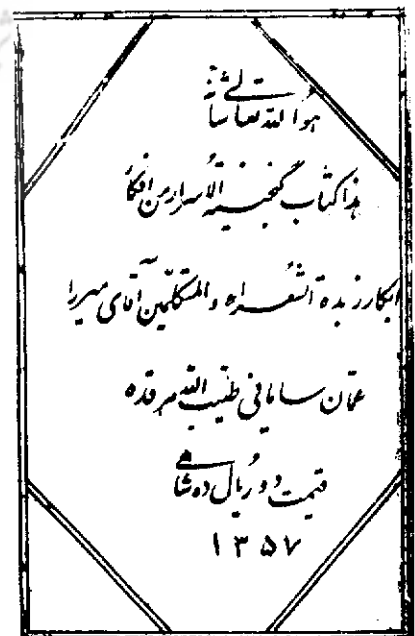 هو الله تعالی شأنه
هذا کتاب گنجینة الاسرار من افکار
ابکار زبدة الشعراء والمتکلمین آقای میرزا
عمان سامانی طیب الله مرقده
قیمت دو ریال ده شاهی
۱۳۵۷